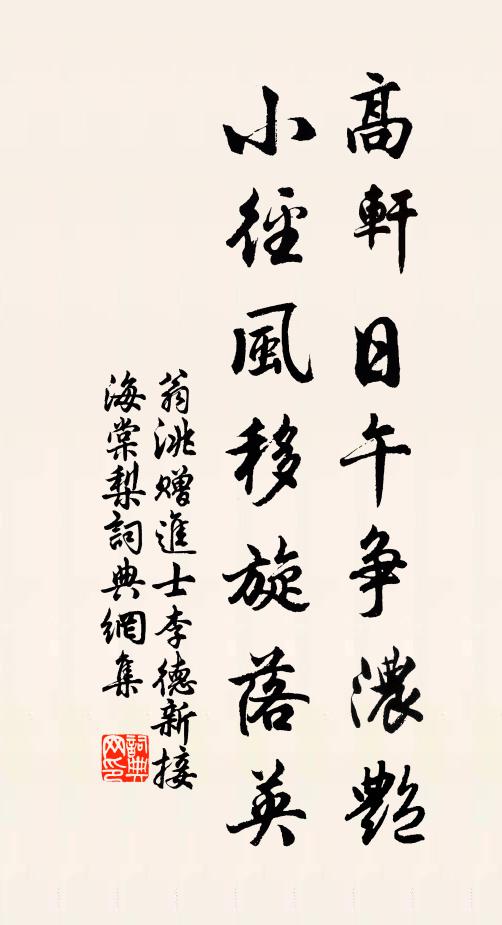 高軒日午争濃艷
小徑風移旋落英
翁洮贈進士李德新接
海棠梨詞典網集
詞典
网印